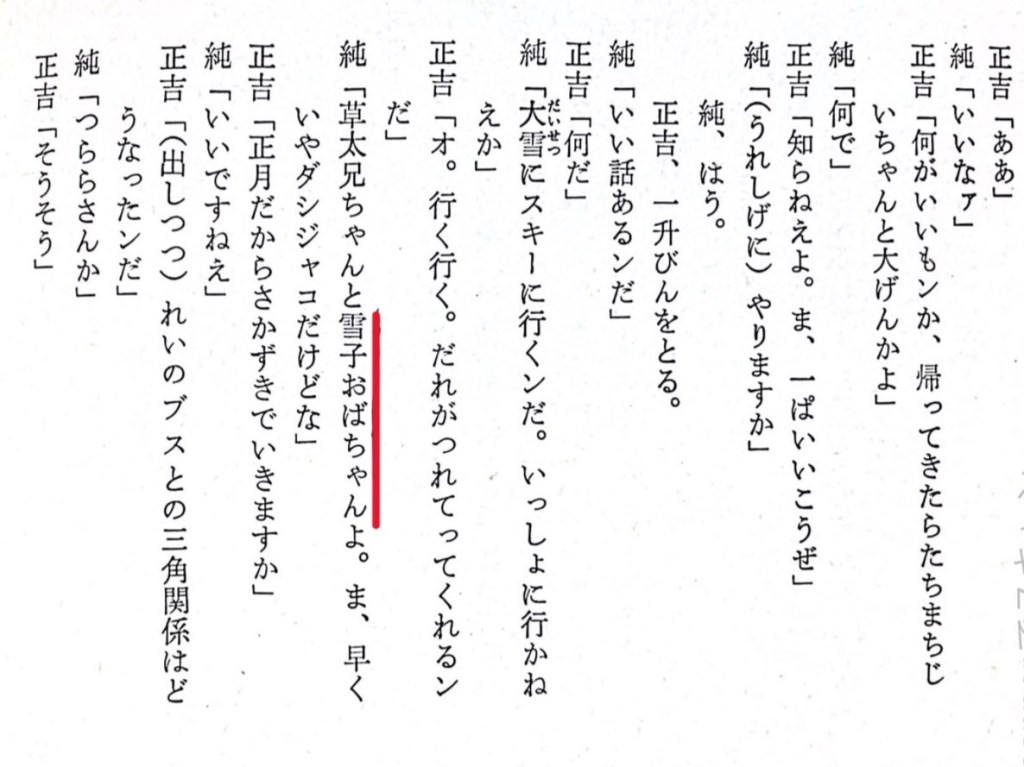 正吉「ああ」
純「いいなァ」
正吉「何がいいもンか、帰ってきたらたちまちじ
いちゃんと大げんかよ」
純「何で」
正吉「知らねえよ。ま、一ぱいいこうぜ」
純「(うれしげに)やりますか」
純、はう。
正吉、一升びんをとる。
純「いい話あるンだ」
正吉「何だ」
純「大雪にスキーに行くンだ。いっしょに行かね
だいせつ
えか」
正吉「オ。行く行く。だれがつれてってくれるン
だ」
純「草太兄ちゃんと雪子おばちゃんよ。ま、早く
いやダシジャコだけどな」
正吉「正月だからさかずきでいきますか」
純「いいですねえ」
正吉「(出しつつ)れいのブスとの三角関係はど
うなったンだ」
純「つららさんか」
正吉「そうそう」